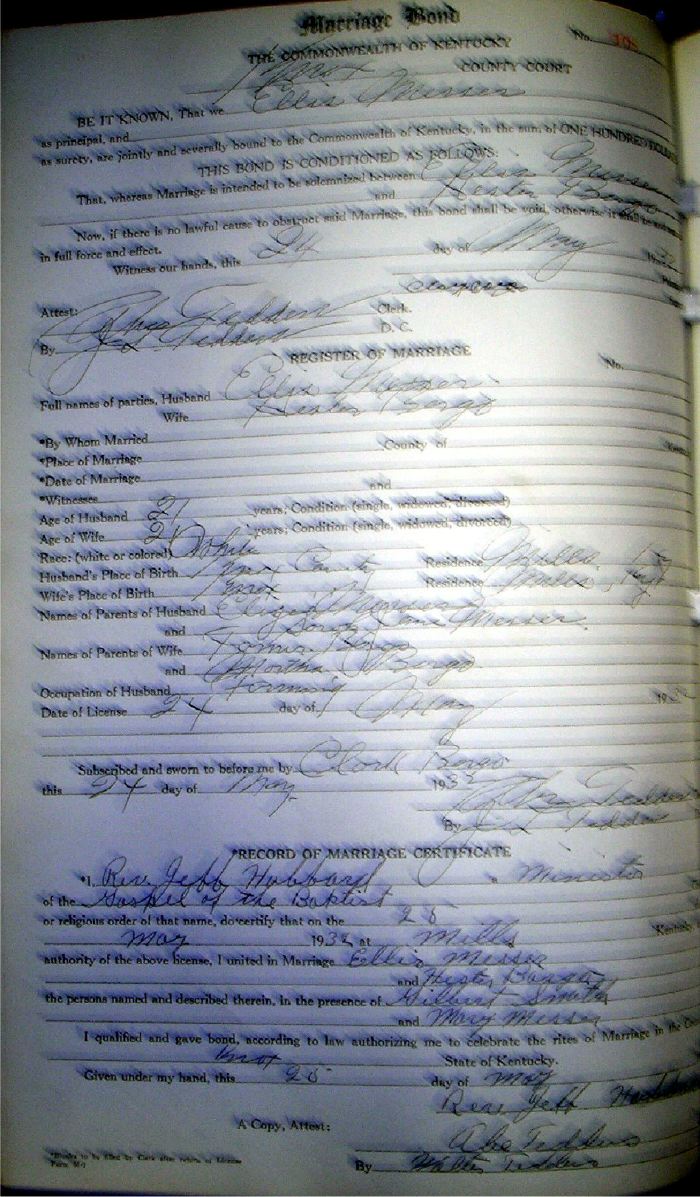 Marriage Bond
No. 105
THE COMMONWEALTH OF KENTUCKY
Knox COUNTY COURT
BE IT KNOWN, That we Ellis Messer
as principal, and
as surety, are jointly and severally bound to the Commonwealth of Kentucky, in the sum of ONE HUNDRED
THIS BOND IS CONDITIONED AS FOLLOWS:
That, whereas Marriage is intended to be solemnized between Ellis Messer
and Hester Bargo
Now, if there is no lawful cause to obstruct said Marriage, this bond shall be void, otherwise it shall
in full force and effect.
Witness our hands, this 24 day of May
Attest:
Abe Tedders Clerk.
By Tedders D. C.
REGISTER OF MARRIAGE
No.
Full names of parties, Husband Ellis Messer
Wife Hester Bargo
*By Whom Married
*Place of Marriage County of
*Date of Marriage
*Witnesses and
Age of Husband 21 years; Condition (single, widowed, divorced)
Age of Wife 21 years; Condition (single, widowed, divorced)
Race: (white or colored) White
Husband's Place of Birth Knox County Residence Mills, Ky
Wife's Place of Birth Knox Residence Mills, Ky
Names of Parents of Husband Messer
and Jane Messer
Names of Parents of Wife Bargo
and Martha Bargo
Occupation of Husband Farming
Date of License 24 day of May 193
Subscribed and sworn to before me by Clark Bargo
this 24 day of May 1932
Abe Tedders
By Tedders
*RECORD OF MARRIAGE CERTIFICATE
*I, Rev. Jeff Hubbard a Minister
of the Gospel of the Baptist
or religious order of that name, do certify that on the 25
May 1932 at Mills Kentucky
authority of the above license, I united in Marriage Ellis Messer
and Hester Bargo
the persons named and described therein, in the presence of Gilbert Smith
and Mary Messer
I qualified and gave bond, according to law authorizing me to celebrate the rites of Marriage in the
Knox State of Kentucky.
Given under my hand, this 25 day of May
Rev. Jeff Hubbard
A Copy, Attest:
Abe Tedders
By Walter Tedders
*Blanks to be filled by Clerk after return of License